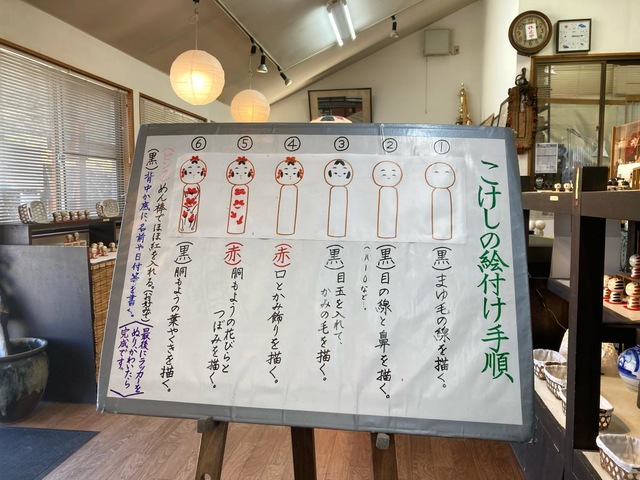 こけしの絵付け手順
①
(黒)まゆ毛の線を描く。
②
(黒)目の線と鼻を描く。
③
(黒)目玉を入れて、
かみの毛を描く。
④
(赤)口とかみ飾りを描く。
⑤
(赤)胴もようの花びらと
つぼみを描く。
⑥
(黒)胴もようの葉やくきを描く。
(ピンク)めん棒でほほ紅を入れる。(お好みで)
(黒)背中か底に、名前や日付等を書く。
最後にラッカーを
ぬり、かわいたら
完成です。